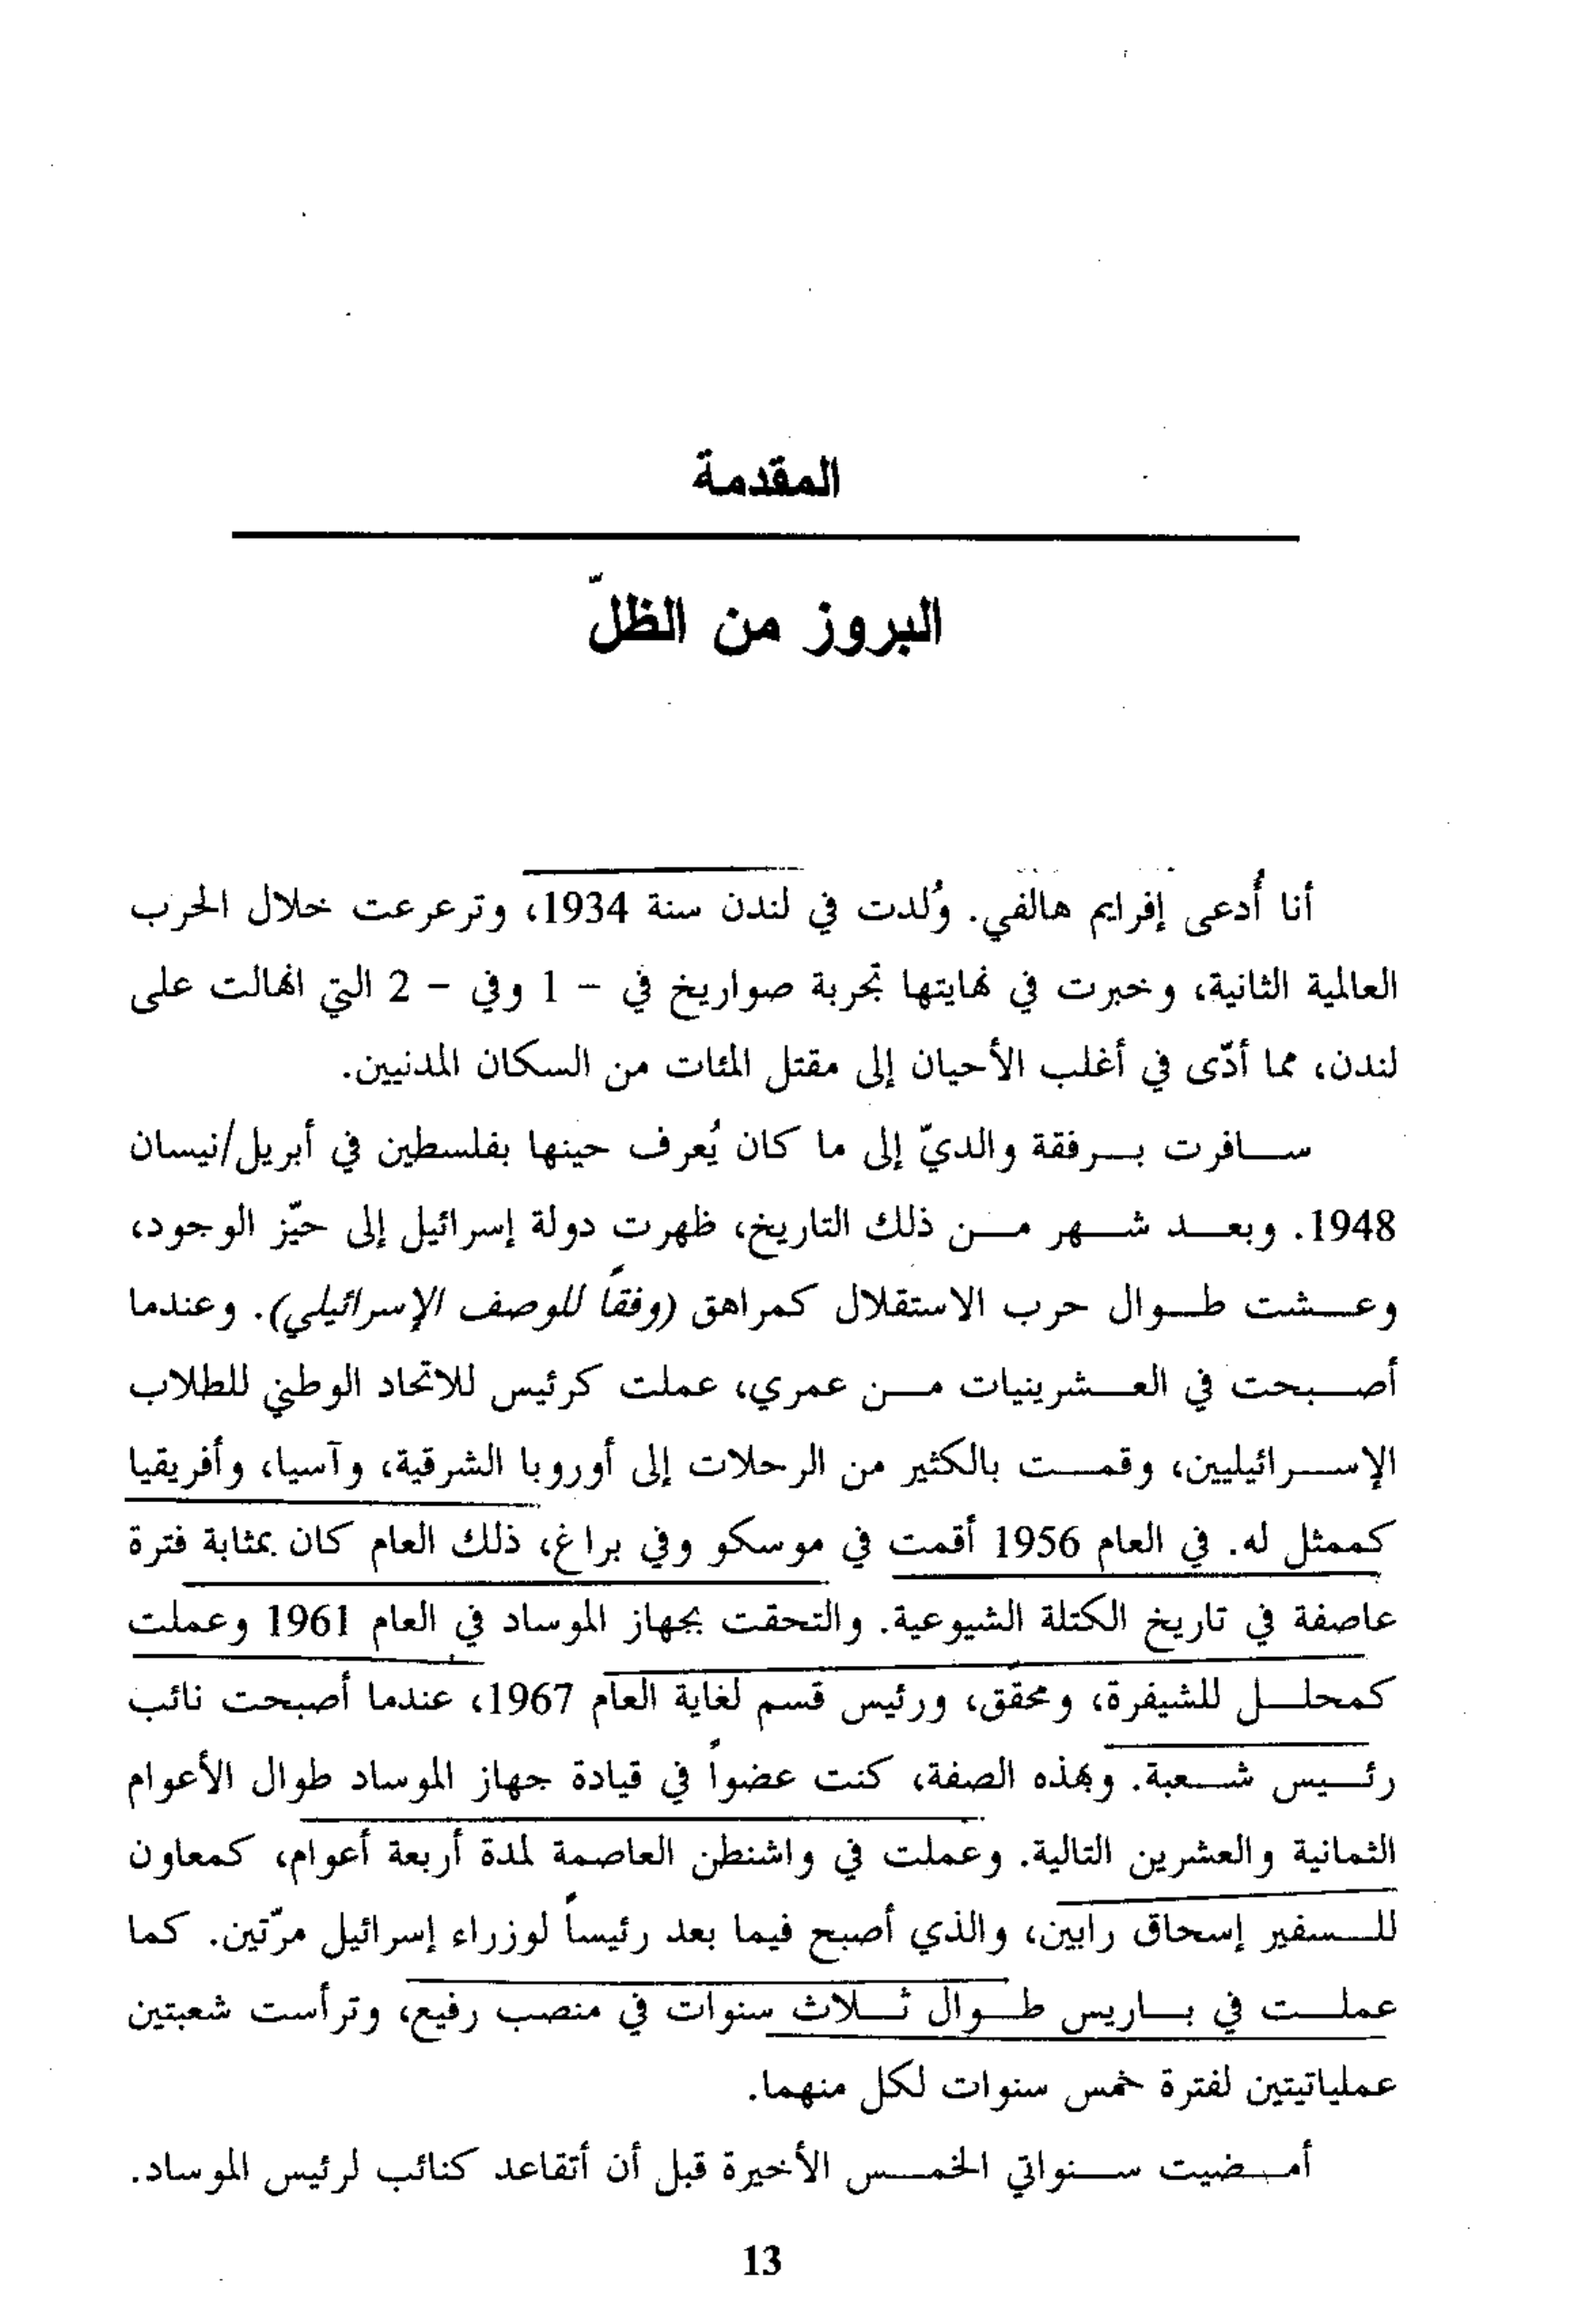 المقدمة
البروز من الظلّ
أنا أُدعى إفرايم هالفي. وُلدت في لندن سنة 1934، وترعرعت خلال الحرب
العالمية الثانية، وخبرت في نهايتها تجربة صواريخ في - 1 وفي - 2 التي انهالت على
لندن، مما أدّى في أغلب الأحيان إلى مقتل المئات من السكان المدنيين.
سافرت برفقة والديّ إلى ما كان يُعرف حينها بفلسطين في أبريل/نيسان
1948. وبعد شهر من ذلك التاريخ، ظهرت دولة إسرائيل إلى حيّز الوجود،
وعشت طوال حرب الاستقلال كمراهق (وفقاً للوصف الإسرائيلي). وعندما
أصبحت في العشرينيات من عمري، عملت كرئيس للاتحاد الوطني للطلاب
الإسرائيليين، وقمت بالكثير من الرحلات إلى أوروبا الشرقية، وآسيا، وأفريقيا
كممثل له. في العام 1956 أقمت في موسكو وفي براغ، ذلك العام كان بمثابة فترة
عاصفة في تاريخ الكتلة الشيوعية. والتحقت بجهاز الموساد في العام 1961 وعملت
كمحلل للشيفرة، ومحقّق، ورئيس قسم لغاية العام 1967، عندما أصبحت نائب
رئيس شعبة. وبهذه الصفة، كنت عضواً في قيادة جهاز الموساد طوال الأعوام
الثمانية والعشرين التالية. وعملت في واشنطن العاصمة لمدة أربعة أعوام، كمعاون
للسفير إسحاق رابين، والذي أصبح فيما بعد رئيساً لوزراء إسرائيل مرّتين. كما
عملت في باريس طوال ثلاث سنوات في منصب رفيع، وترأست شعبتين
عملياتيتين لفترة خمس سنوات لكل منهما.
أمضيت سنواتي الخمس الأخيرة قبل أن أتقاعد كنائب لرئيس الموساد.
13